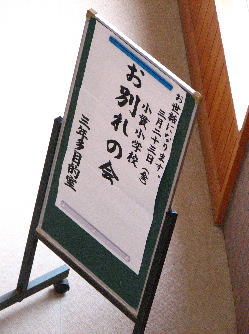 お世話になります。
三月二十三日(金)
小曽小学校
お別れの会
三年多目的室